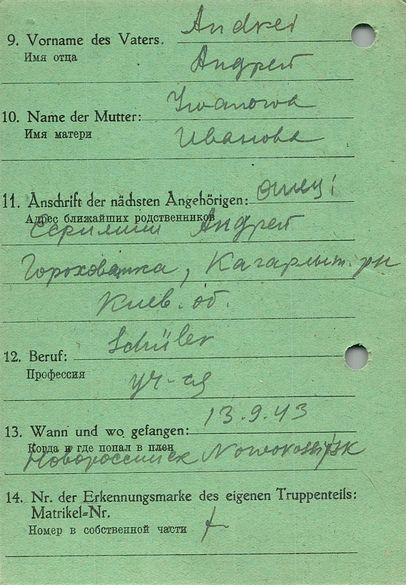 Andrei
9. Vorname des Vaters:
Имя отца
Андрей
Iwanowa
10. Name der Mutter:
Имя матери
Иванова
11. Anschrift der nächsten Angehörigen: отец:
Адрес ближайших родственников
Андрей
Гороховатка, Кагарлыт. рн
Киев. об.
Schüler
12. Beruf:
Профессия
уч-ся
13.9.43
13. Wann und wo gefangen:
Когда и где попал в плен
Новороссийск Noworossijsk
14. Nr. der Erkennungsmarke des eigenen Truppenteils:
Matrikel-Nr.
Номер в собственной части